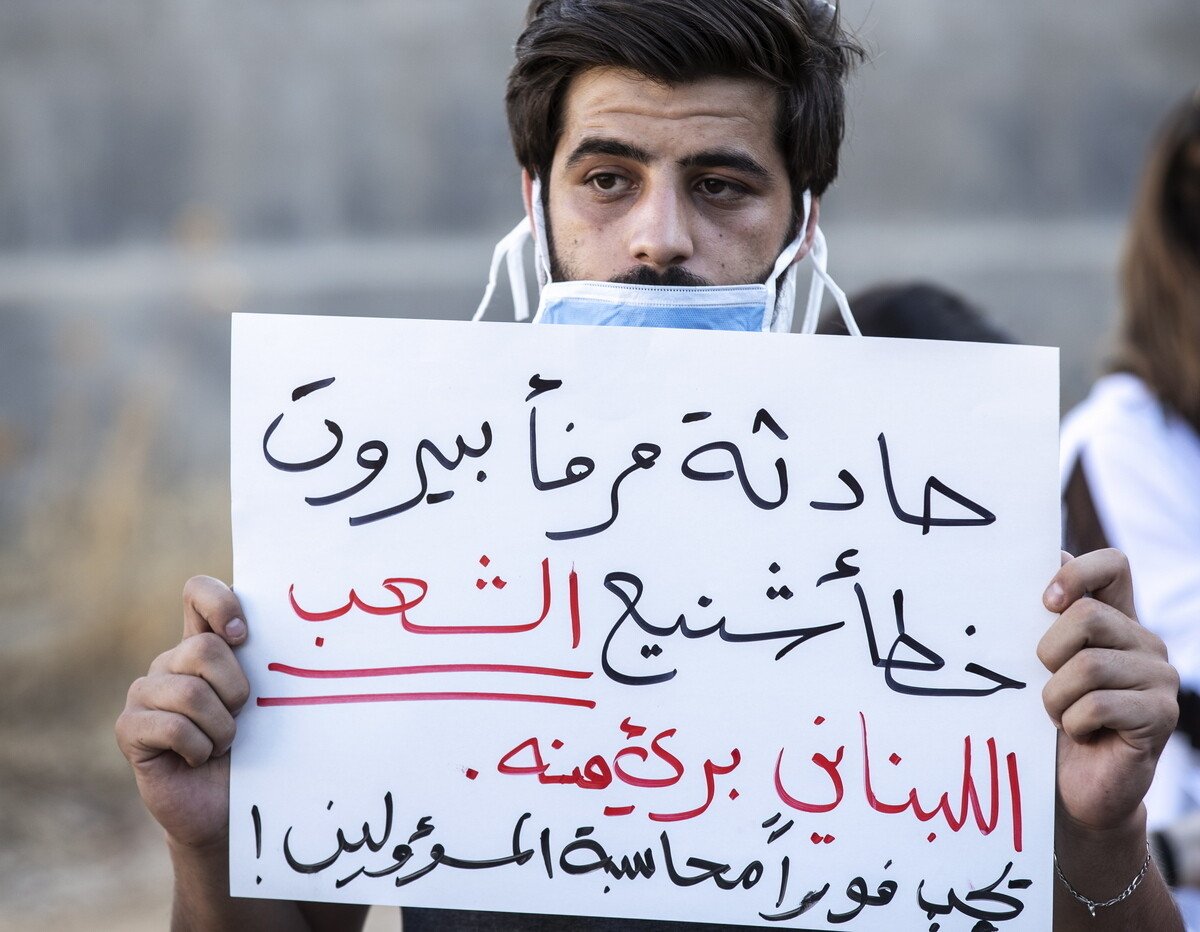 حادثة مرفأ بيروت
خطأ شنيع الشعب
اللبناني بريء منه.
يجب فوراً محاسبة المسؤولين !